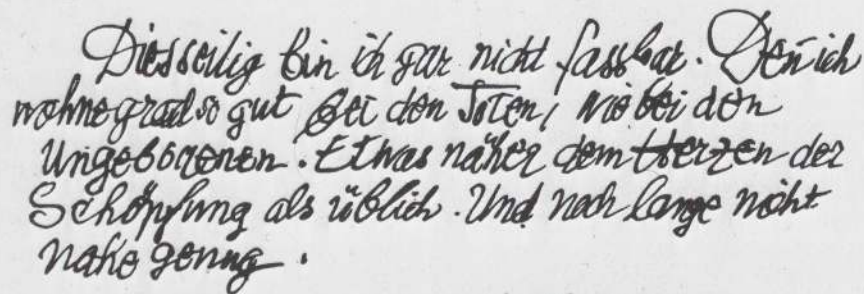 Diesseitig bin ich gar nicht fassbar. Deñ ich
wohne grad so gut bei den Toten, wie bei den
Ungeborenen. Etwas näher dem Herzen der
Schöpfung als üblich. Und noch lange nicht
nahe genug.